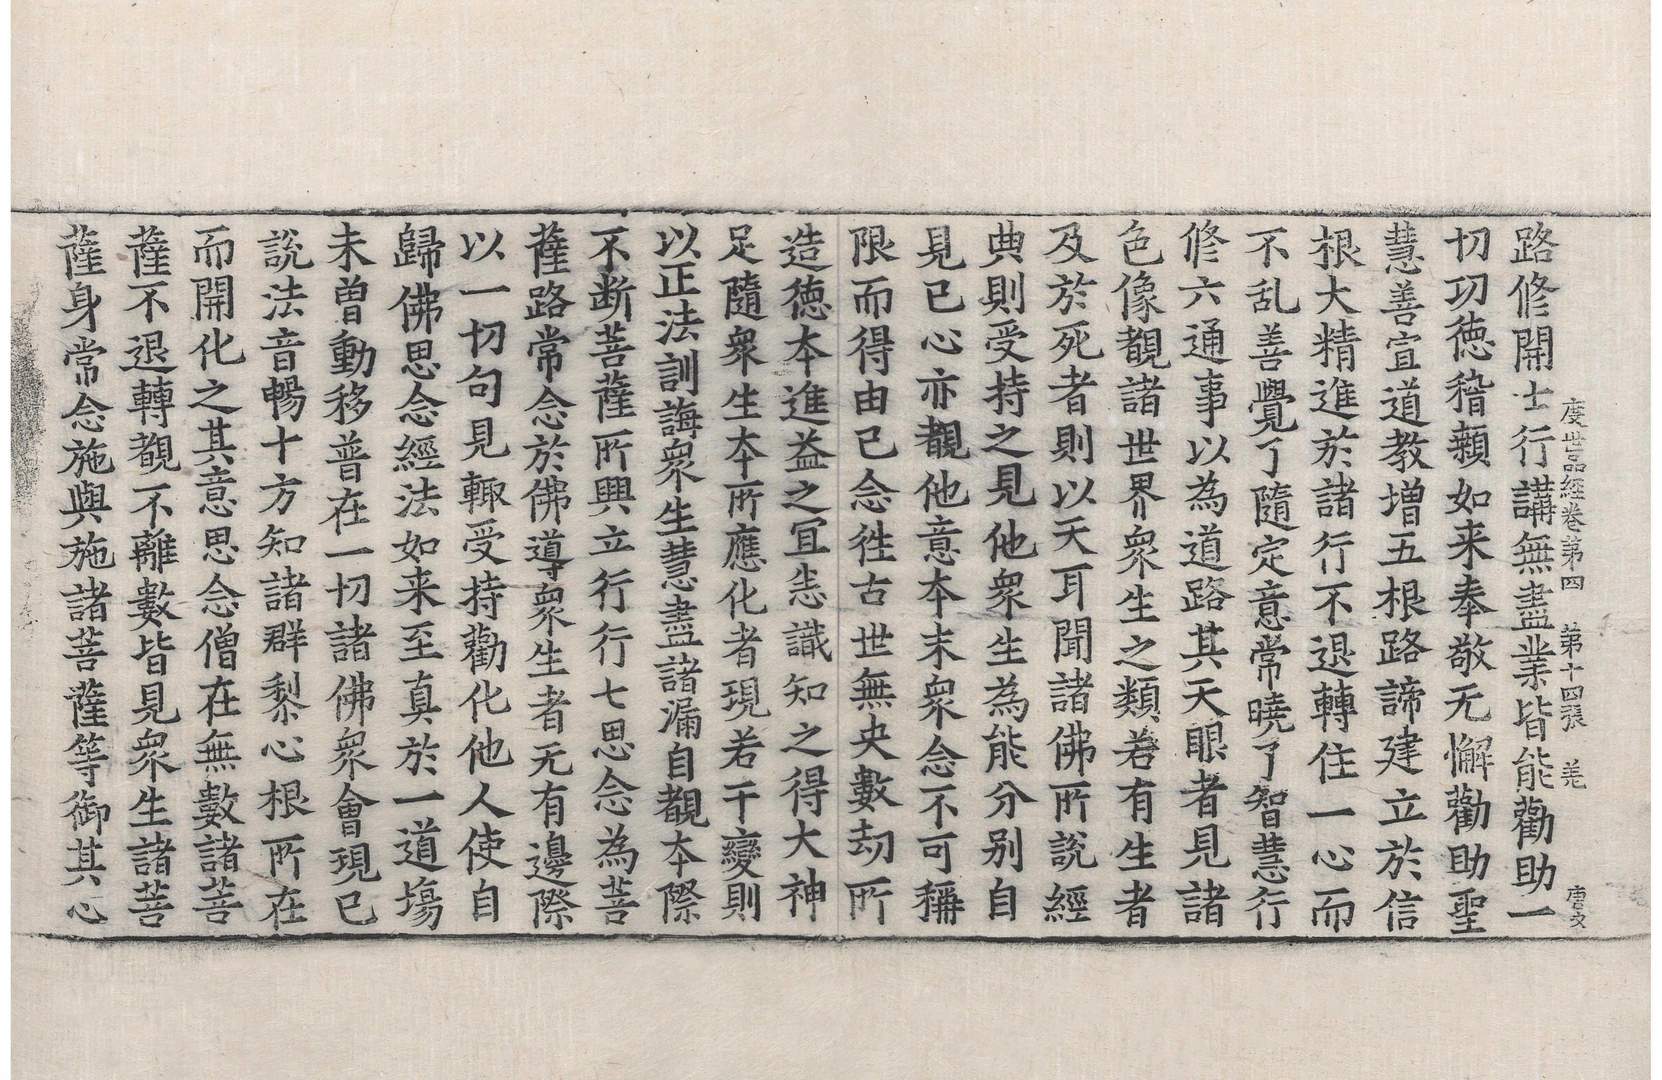 度世品經卷第四　第十四張　羌　唐文
路修開士行講無盡業皆能勸助一
切功徳稽顙如来奉敬无懈勸助聖
慧善宣道教增五根路諦建立於信
根大精進於諸行不退轉住一心而
不乱善覺了隨定意常曉了智慧行
修六通事以為道路其天眼者見諸
色像覩諸世界眾生之類若有生者
及於死者則以天耳聞諸佛所說經
典則受持之見他眾生為能分别自
見己心亦覩他意本末眾念不可稱
限而得由已念徃古世無央數劫所
造德本進益之冝恙識知之得大神
足隨眾生本所應化者現若干變則
以正法訓誨眾生慧盡諸漏自覩本際
不断菩薩所興立行行七思念為菩
薩路常念於佛導眾生者无有邊際
以一切句見輙受持勸化他人使自
歸佛思念經法如来至真於一道場
未曾動移普在一切諸佛眾會現已
說法音暢十方知諸群黎心根所在
而開化之其意思念僧在無數諸菩
薩不退轉覩不離數皆見眾生諸菩
薩身常念施與施諸菩薩等御其心